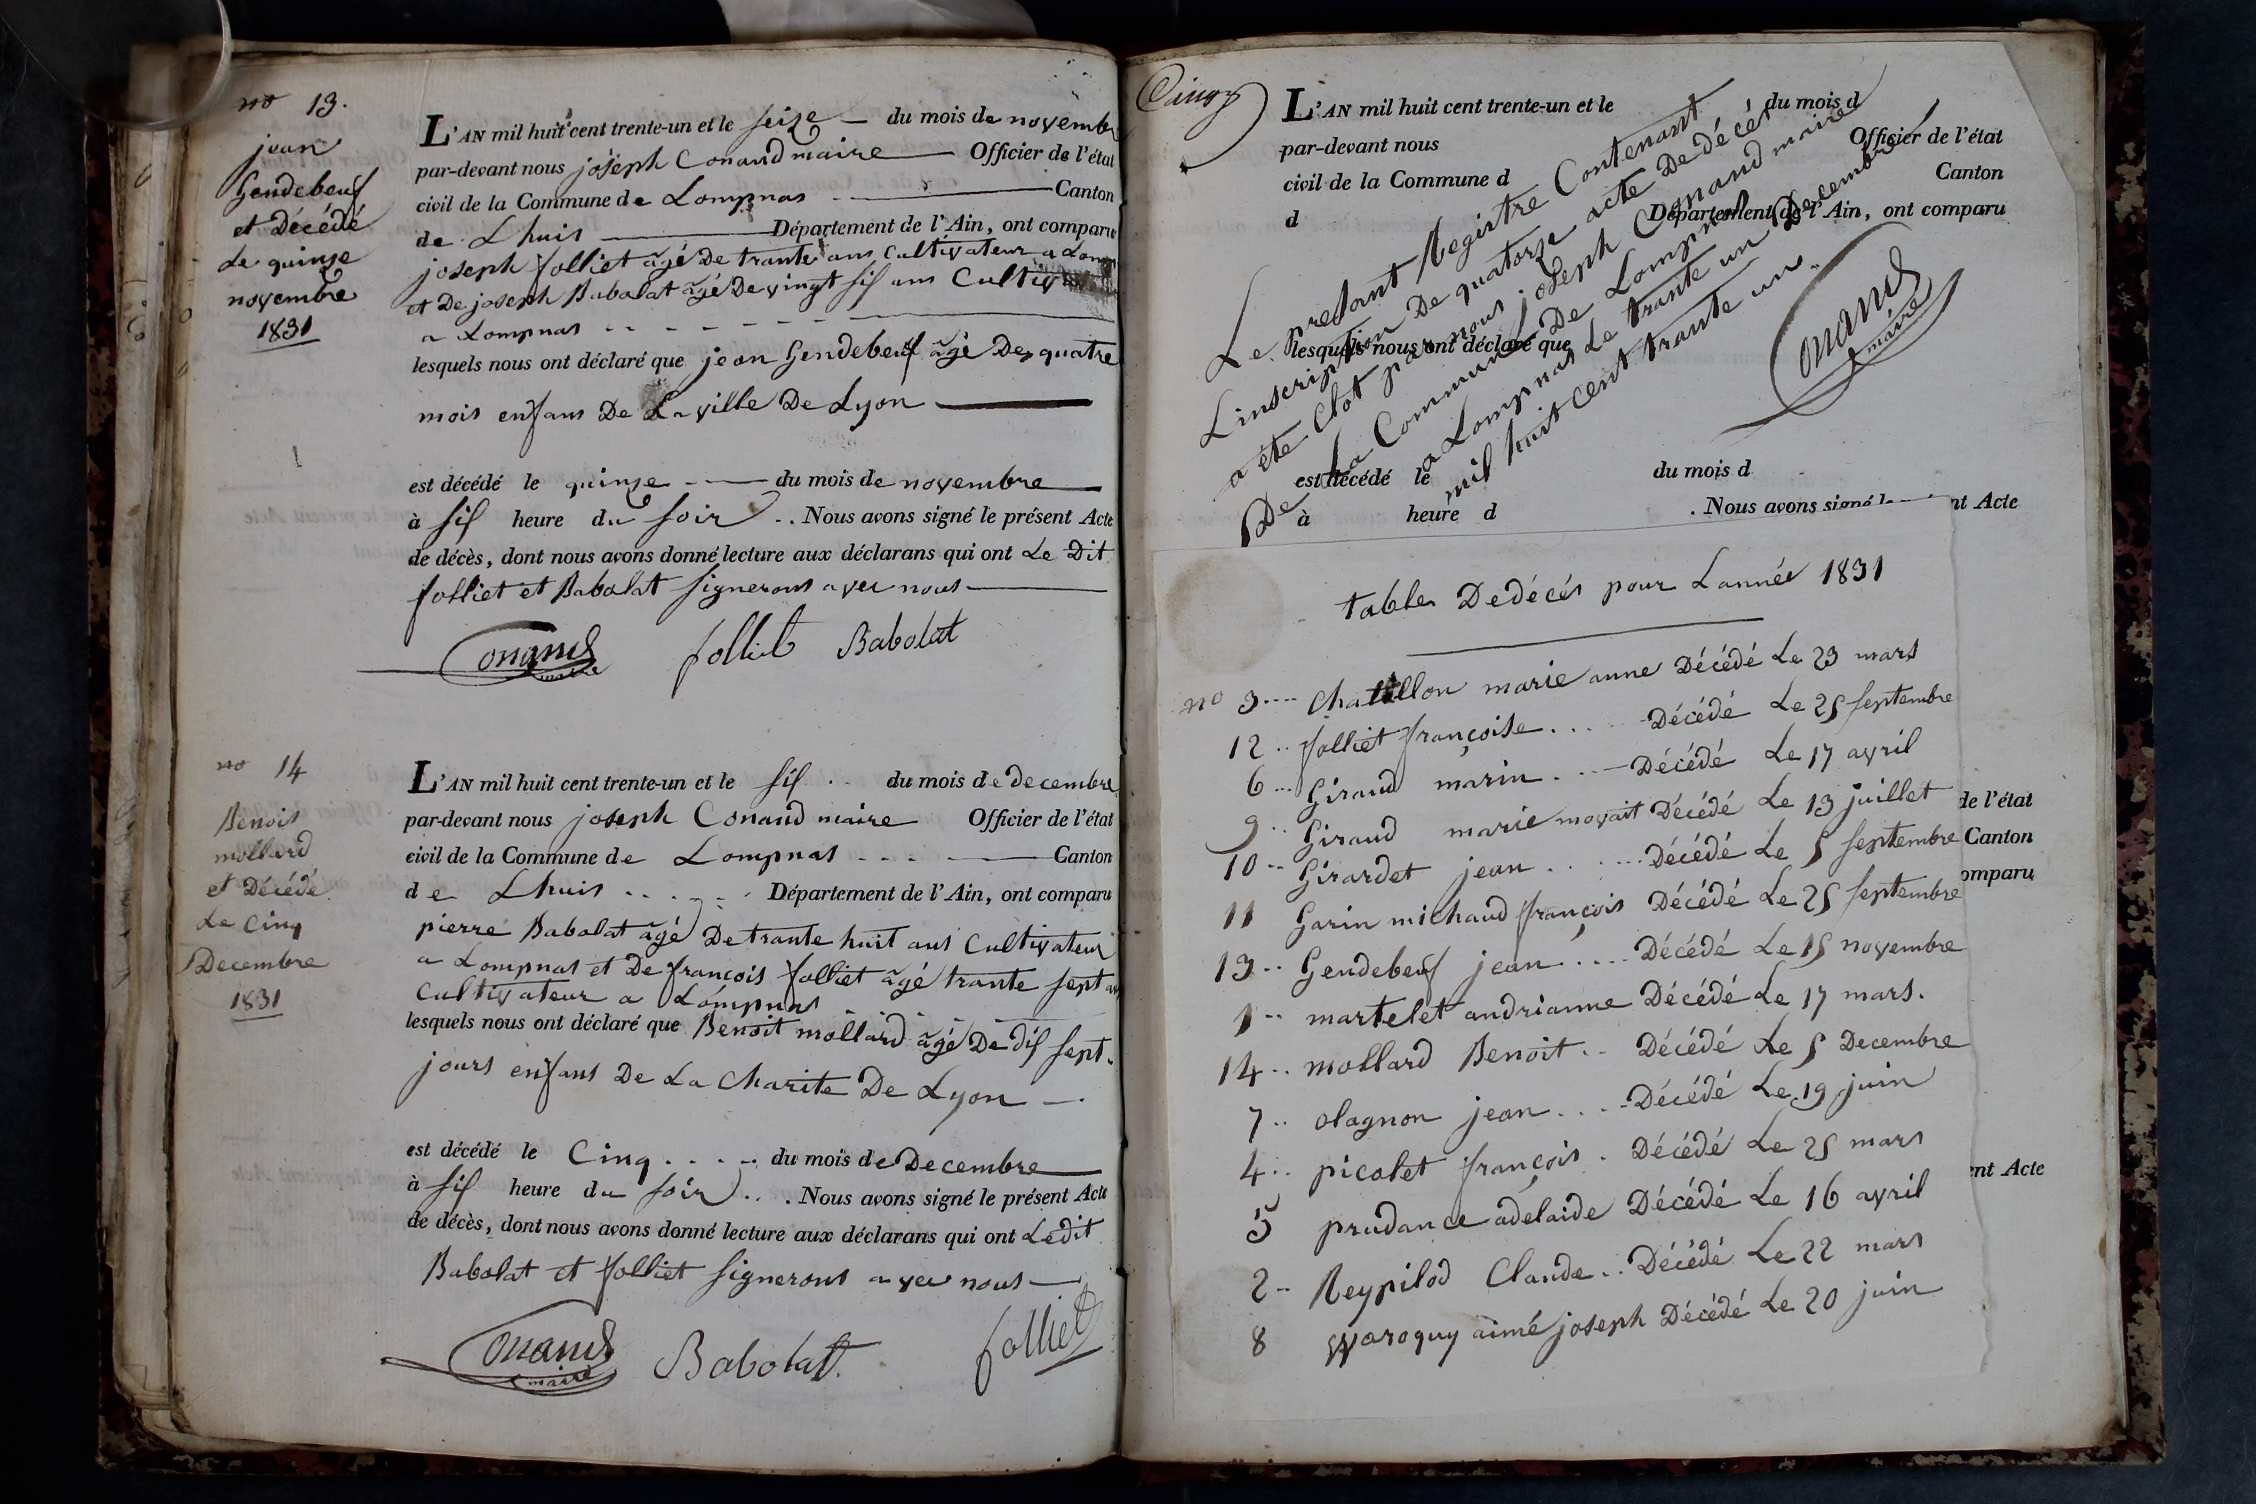 no 13.
jean
Gendebeuf
et Décédé
Le quinze
novembre
1831
L'AN mil huit cent trente-un et le seize du mois de novembre
par-devant nous joseph Conand maire Officier de l'état
civil de la Commune de Lompnas Canton
de Lhuis Département de l'Ain, ont comparu
joseph folliet âgé De trante ans Cultivateur a Lomp
et De joseph Babolat âgé De vingt sis ans Cultiv
a Lompnas
lesquels nous ont déclaré que jean Gendebeuf âgé De quatre
mois enfans De La ville De Lyon
est décédé le quinze du mois de novembre
à sis heure du soir . . Nous avons signé le présent Acte
de décès, dont nous avons donné lecture aux déclarans qui ont Le Dit
folliet et Babolat signerons avec nous
Conand maire folliet Babolat
no 14
Benoit
mollard
et Décédé
Le Cinq
Decembre
1831
L'AN mil huit cent trente-un et le sis . . du mois de decembre
par-devant nous joseph Conand maire Officier de l'état
civil de la Commune de Lompnas Canton
de Lhuis Département de l'Ain, ont comparu
pierre Babolat âgé De trante huit ans Cultivateur
a Lompnas et De françois folliet âgé trante sept an
Cultivateur a Lompnas
lesquels nous ont déclaré que Benoit mollard âgé De dis sept
jours enfans De La Charite De Lyon
est décédé le Cinq . . . . du mois de Decembre
à sis heure du soir . . . Nous avons signé le présent Acte
de décès, dont nous avons donné lecture aux déclarans qui ont Le dit
Babolat et folliet signerons avec nous
Conand maire Babolat folliet
L'AN mil huit cent trente-un et le du mois d
par-devant nous Officier de l'état
civil de la Commune d Canton
d Département de l'Ain, ont comparu
Le presant Registre Contenant
Linscription De quatorze acte De décét
a éte Clot par nous joseph Conand maire
De La Commune De Lompnas
a Lompnas Le trante un Decembre
mil huit cent trante un.
Conand
maire
lesquels nous ont déclaré que
est décédé le du mois d
à heure d . Nous avons signé le nt Acte
table Dedécés pour Lannée 1831
no 3 .... Chatillon marie anne Décédé Le 23 mars
12 .. folliet françoise .... Décédé Le 25 septembre
6 ... Giraud marin ... Décédé Le 17 avril
9 .. Giraud marie Décédé Le 13 juillet
10 .. Girardet jean ..... Décédé Le 5 septembre
11 Garin michaud françois Décédé Le 25 septembre
13 .. Gendebeuf jean .... Décédé Le 15 novembre
1 .. martelet andrianne Décédé Le 17 mars.
14 .. mollard Benoit .. Décédé Le 5 Decembre
7 .. olagnon jean .... Décédé Le 19 juin
4 .. picolet françois . Décédé Le 25 mars
5 prudance adelaide Décédé Le 16 avril
2 .. Reypilod Claude .. Décédé Le 22 mars
8 Waroquy aimé joseph Décédé Le 20 juin
de l'état
Canton
omparu
ent Acte